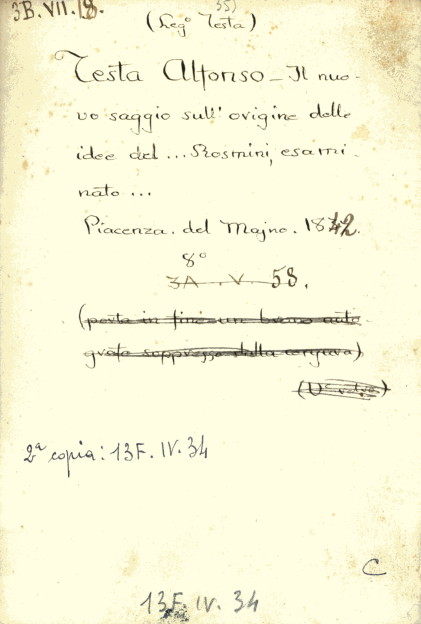 3B. VII. 18.
35)
(Leg° Testa)
Testa Alfonso - Il nuo-
vo saggio sull' origine delle
idee del ... Rosmini, esami-
nato ...
Piacenza. del Majno. 1842.
8°
3A. V. 58.
(porta in fine un brano auto-
grafo soppresso dalla censura)
2ª copia: 13F. IV. 34
C
13F. IV. 34